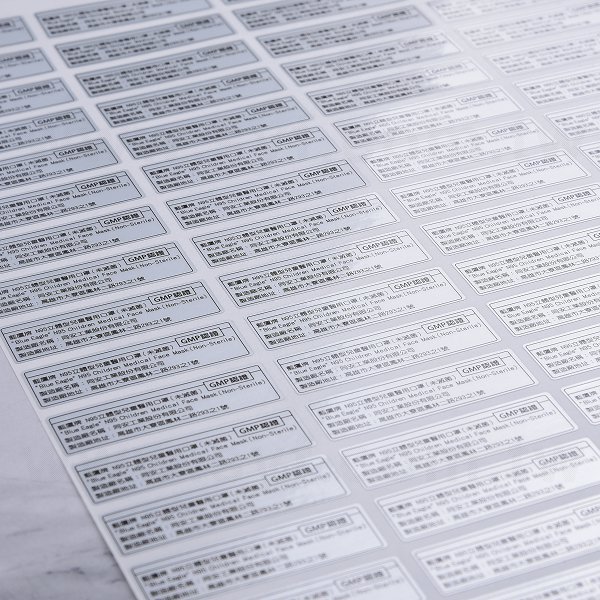 GMP認證
藍鷹牌 N95立體型兒童醫用口罩(未滅菌)
"Blue Eagle" N95 Children Medical Face Mask(Non-Sterile)
製造廠名稱 同安工業股份有限公司
製造廠地址 高雄市大寮區鳳林一路293之1號